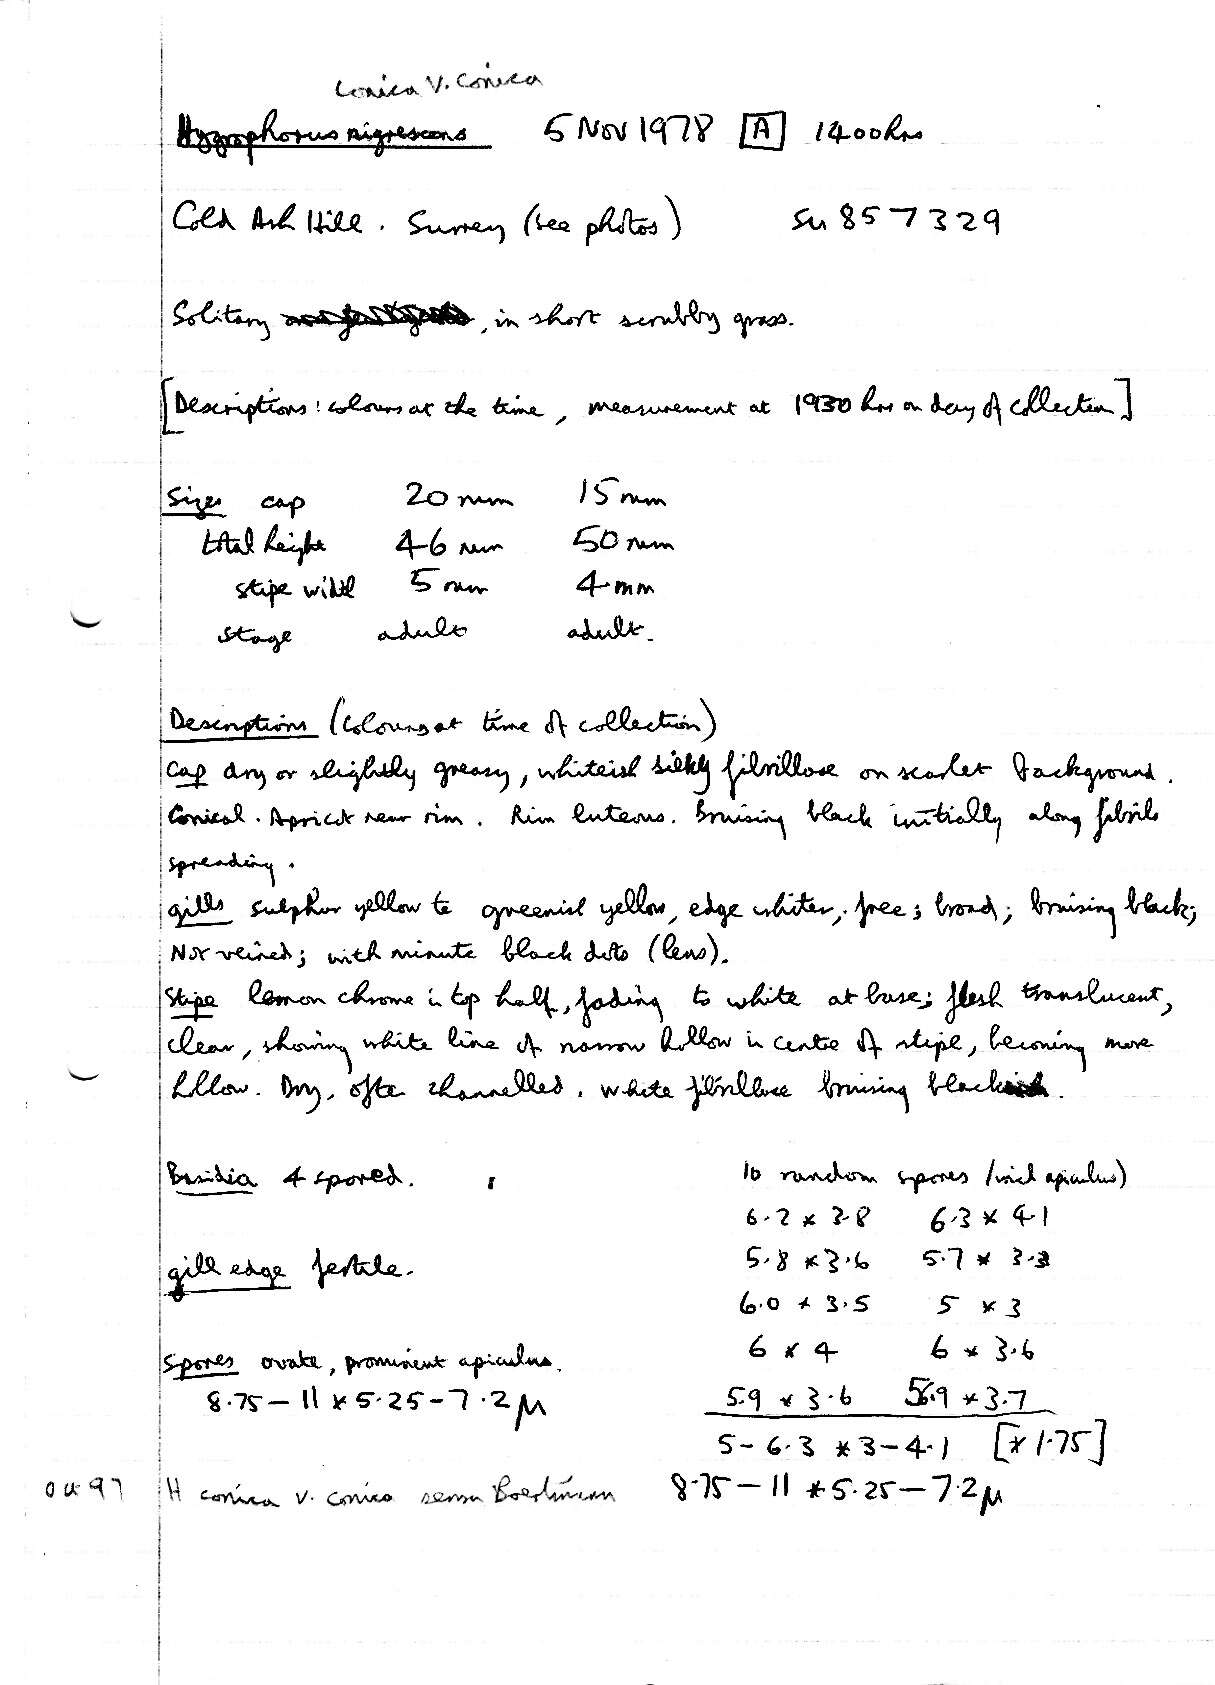 Conica V. Conica
Hygrophorus nigrescens 5 Nov 1978 [A] 1400 hrs
Cold Ash Hill. Surrey (see photos) SU 857329
Solitary , in short scrubby grass.
[Descriptions: colours at the time, measurement at 1930 hrs on day of collection]
Sizes cap 20 mm 15 mm
total height 46 mm 50 mm
stipe width 5 mm 4 mm
stage adult adult.
Descriptions (colours at time of collection)
Cap dry or slightly greasy, whiteish silky fibrillose on scarlet background.
Conical. Apricot near rim. Rim luteous. Bruising black initially along fibrils
spreading.
gills sulphur yellow to greenish yellow, edge whiter, free; broad; bruising black;
Not veined; with minute black dots (lens).
Stipe lemon chrome in top half, fading to white at base; flesh translucent,
clear, showing white line of narrow hollow in centre of stipe, becoming more
hollow. Dry, often channelled. White fibrillose bruising black .
Basidia 4 spored. 10 random spores (incl apiculus)
6.2 * 3.8 6.3 * 4.1
5.8 * 3.6 5.7 * 3.3
gill edge fertile.
6.0 * 3.5 5 * 3
6 * 4 6 * 3.6
Spores ovate, prominent apiculus.
8.75 - 11 * 5.25 - 7.2 μ 5.9 * 3.6 5.9 * 3.7
5 - 6.3 * 3 - 4.1 [* 1.75]
Ou 97 H conica v. conica sensu Boertmann 8.75 - 11 * 5.25 - 7.2 μ